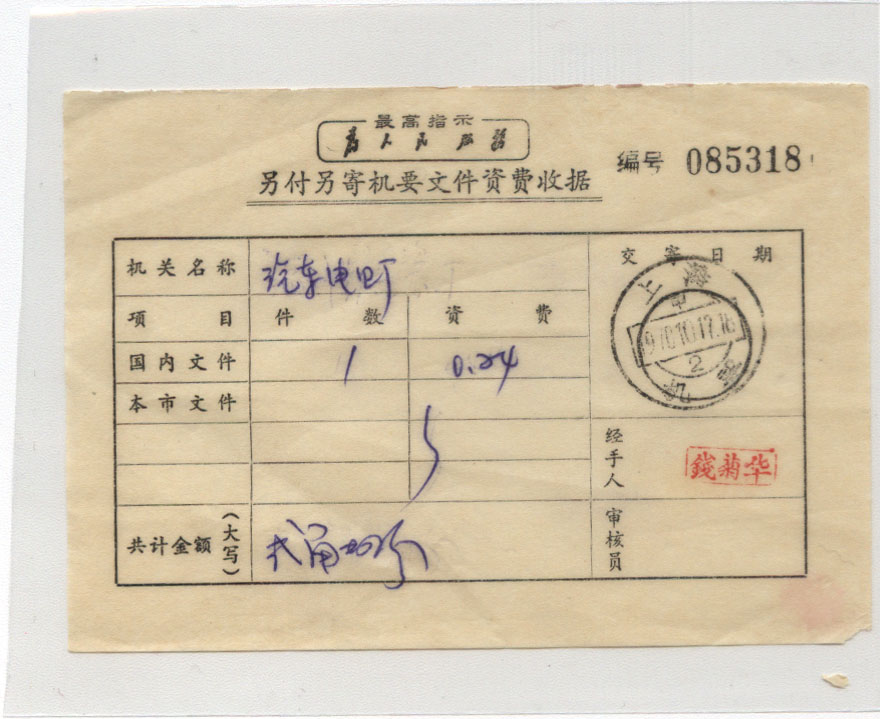 最高指示
为人民服务
编号 085318
另付另寄机要文件资费收据
机关名称 汽车电 交寄日期
项目 件数 资费
国内文件 1 0.24
本市文件
上海
1970.10.17.16
2
经手人 錢菊华
共计金额(大写) 审核员